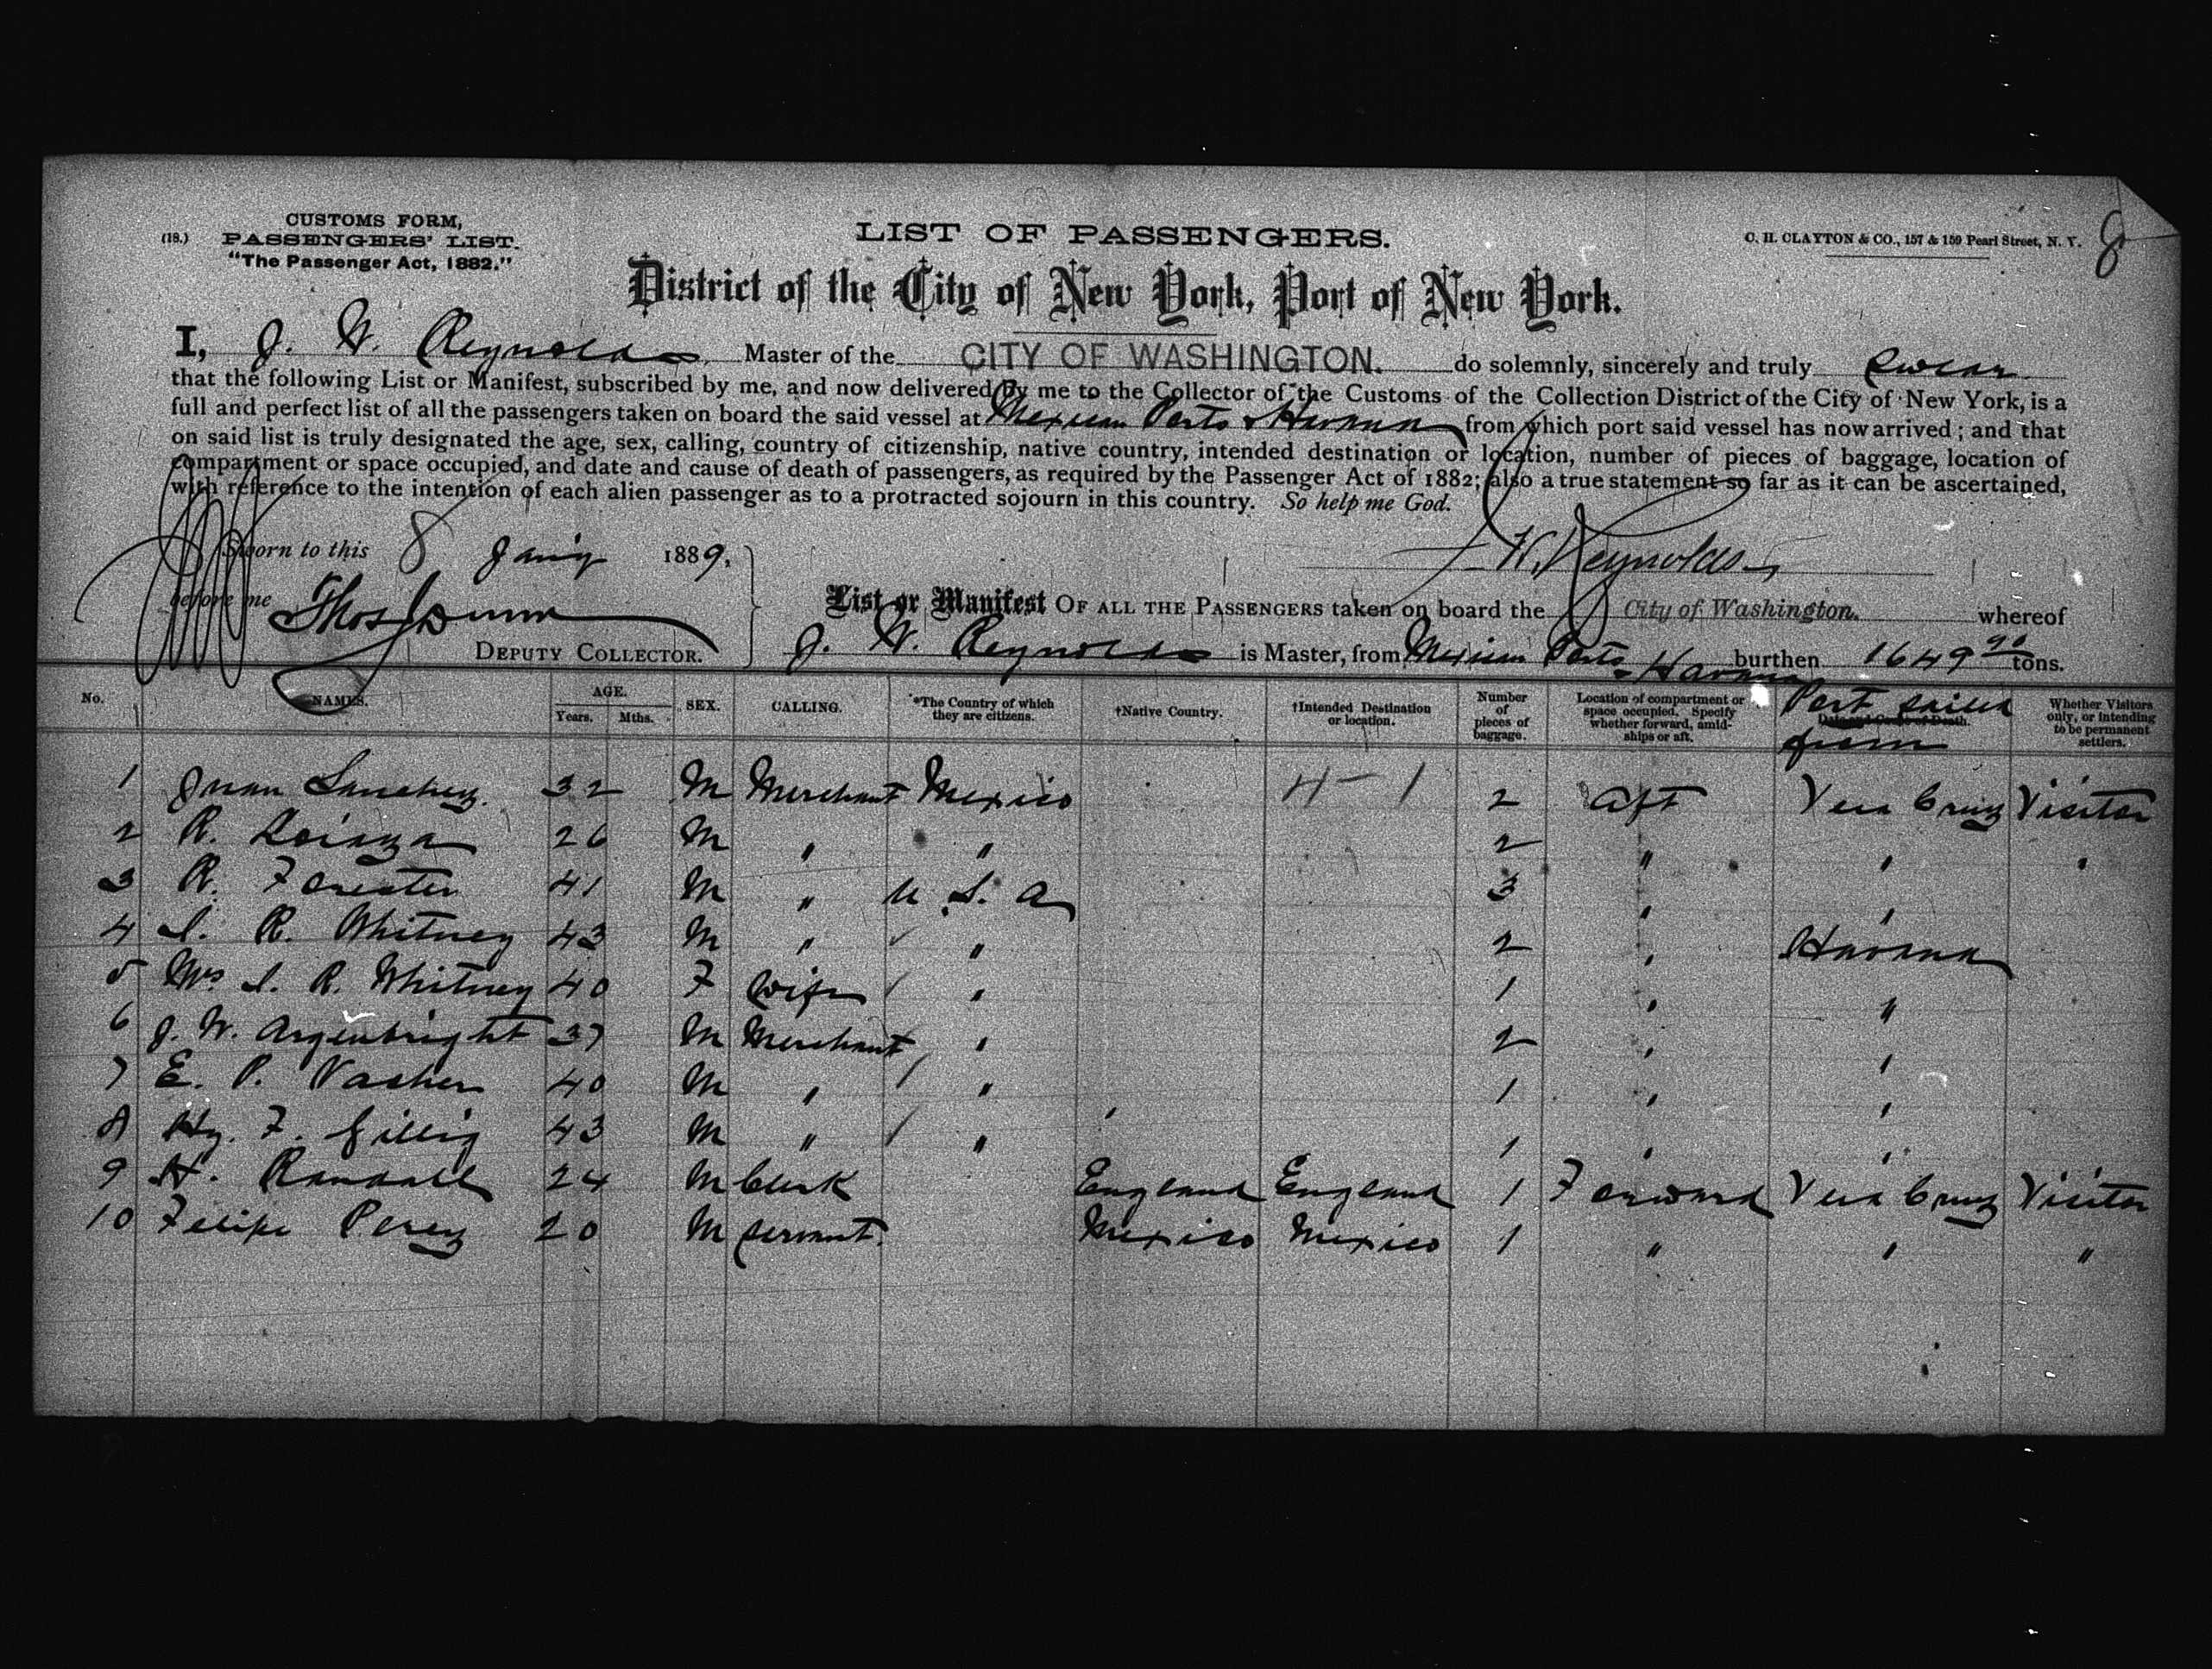 (18.) CUSTOMS FORM,
PASSENGERS' LIST.
"The Passenger Act, 1882."
LIST OF PASSENGERS.
C. H. CLAYTON & CO., 157 & 159 Pearl Street, N. Y.
8
District of the City of New York, Port of New York.
I, J. W. Reynolds Master of the CITY OF WASHINGTON. do solemnly, sincerely and truly swear
that the following List or Manifest, subscribed by me, and now delivered by me to the Collector of the Customs of the Collection District of the City of New York, is a
full and perfect list of all the passengers taken on board the said vessel at Mexican Ports & Havana from which port said vessel has now arrived; and that
on said list is truly designated the age, sex, calling, country of citizenship, native country, intended destination or location, number of pieces of baggage, location of
compartment or space occupied, and date and cause of death of passengers, as required by the Passenger Act of 1882; also a true statement so far as it can be ascertained,
with reference to the intention of each alien passenger as to a protracted sojourn in this country. So help me God.
Sworn to this 8 Jan'y 1889,
J. W. Reynolds
before me Thos Dunn
DEPUTY COLLECTOR.
List or Manifest OF ALL THE PASSENGERS taken on board the City of Washington. whereof
J. W. Reynolds is Master, from Mexican Ports & Havana burthen 1649 90 tons.
No. NAMES. AGE. Years. Mths. SEX. CALLING. *The Country of which they are citizens. †Native Country. †Intended Destination or location. Number of pieces of baggage. Location of compartment or space occupied. Specify whether forward, amidships or aft. Date and Cause of Death. Port sailed from Whether Visitors only, or intending to be permanent settlers.
1 Juan Sanchez. 32 M Merchant Mexico 4-1 2 Aft Vera Cruz Visitor
2 R. Loiaza 26 M " " 2 " " "
3 R. Forester 41 M " U. S. A 3 " "
4 I. R. Whitney 43 M " " 2 " Havana
5 Mrs I. R. Whitney 40 F Wife " 1 " "
6 J. W. Argenbright 37 M Merchant " 2 " "
7 E. P. Vacher 40 M " " 1 " "
8 Hy. F. Gillig 43 M " " 1 " "
9 H. Randall 24 M Clerk England England 1 Forward Vera Cruz Visitor
10 Felipe Perez 20 M Servant. Mexico Mexico 1 " " "